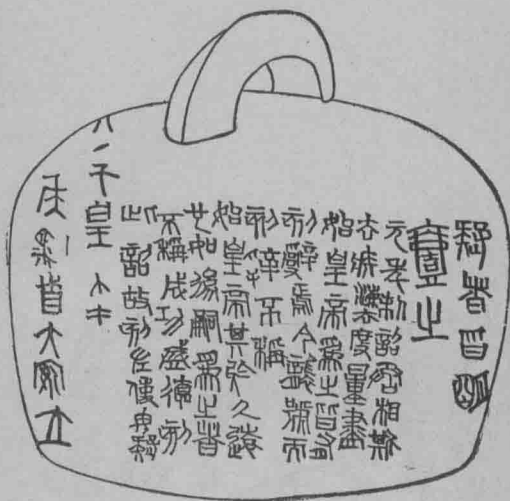 疑者皆明
壹之
元年制詔丞相斯
去疾灋度量盡
始皇帝爲之皆有
刻辭焉今襲號而
刻辭不稱
始皇帝其於久遠
也如後嗣爲之者
不稱成功盛德刻
此詔故刻左使毋疑
六年皇
侯黔首大安立